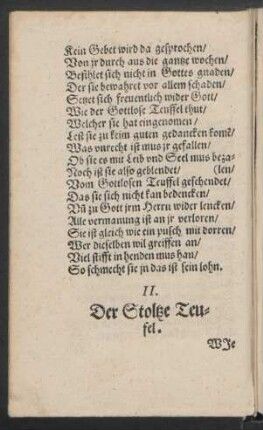 Kein Gebet wird da gesprochen/
Von jr durch aus die gantze wochen/
Befihlet sich nicht in Gottes gnaden/
Der sie bewahret vor allem schaden/
Setzet sich freuentlich wider Gott/
Wie der Gottlose Teuffel thut/
Welcher sie hat eingenomen/
Lest sie zu keim guten gedancken kom̃/
Was vnrecht ist mus jr gefallen/
Ob sie es mit Leib vnd Seel mus beza-
Noch ist sie also geblendet/ (len/
Vom Gottlosen Teuffel geschendet/
Das sie sich nicht kan bedencken/
Vñ zu Gott jrm Herrn wider lencken/
Alle vermanung ist an jr verloren/
Sie ist gleich wie ein pusch mit dorren/
Wer dieselben wil greiffen an/
Viel stifft in henden mus han/
So schmecht sie jn das ist sein lohn.
II.
Der Stoltze Teu-
fel.
WJe